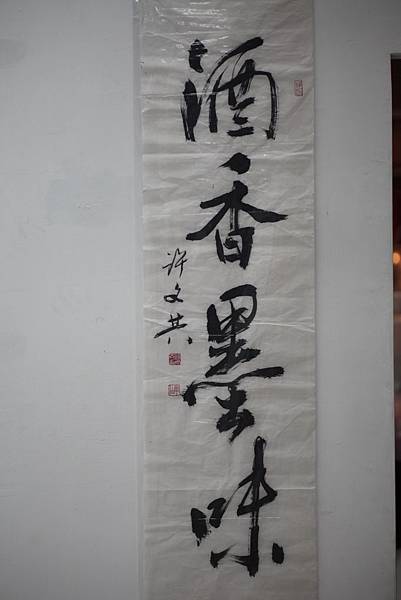 酒香墨味
许文共